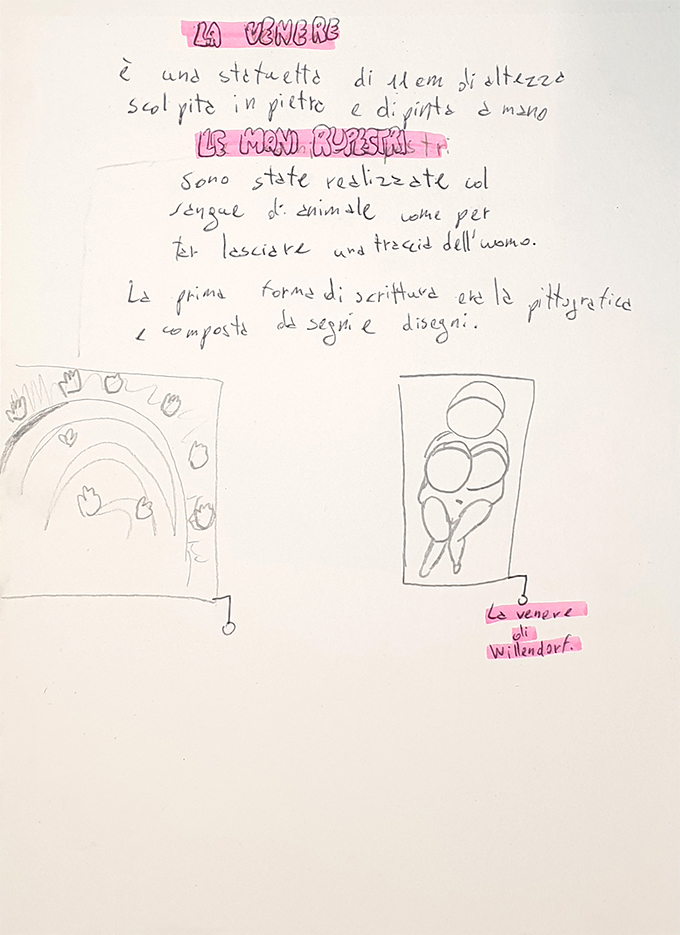 LA VENERE
è una statuetta di 11 cm di altezza
scolpita in pietra e dipinta a mano
LE MANI RUPESTRI
sono state realizzate col
sangue di animale come per
far lasciare una traccia dell'uomo.
La prima forma di scrittura era la pittografica
e composta da segni e disegni.
La venere
di
Willendorf.